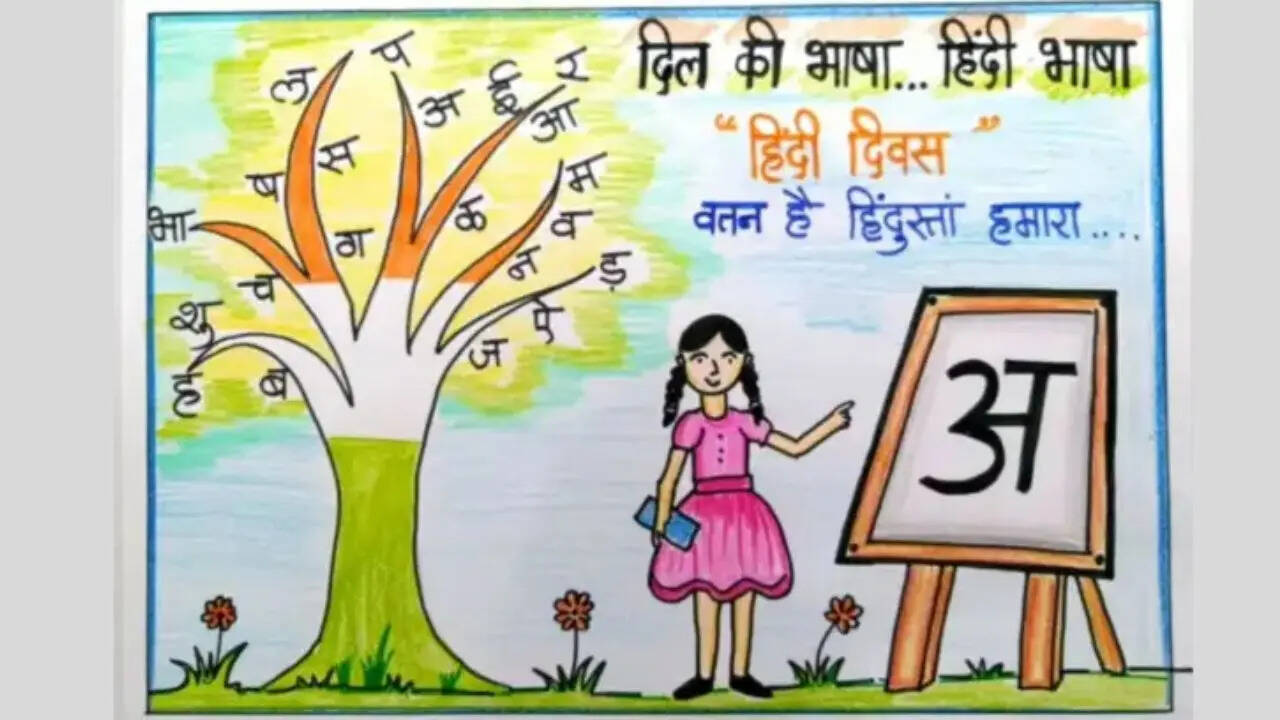 दिल की भाषा... हिंदी भाषा
“हिंदी दिवस”
वतन है हिंदुस्तां हमारा ....
ल
प
अ
ई
र
आ
स
ष
म
क
भा
ग
व
न
ड़
च
शु
ऐ
ज
ह
ब
अ